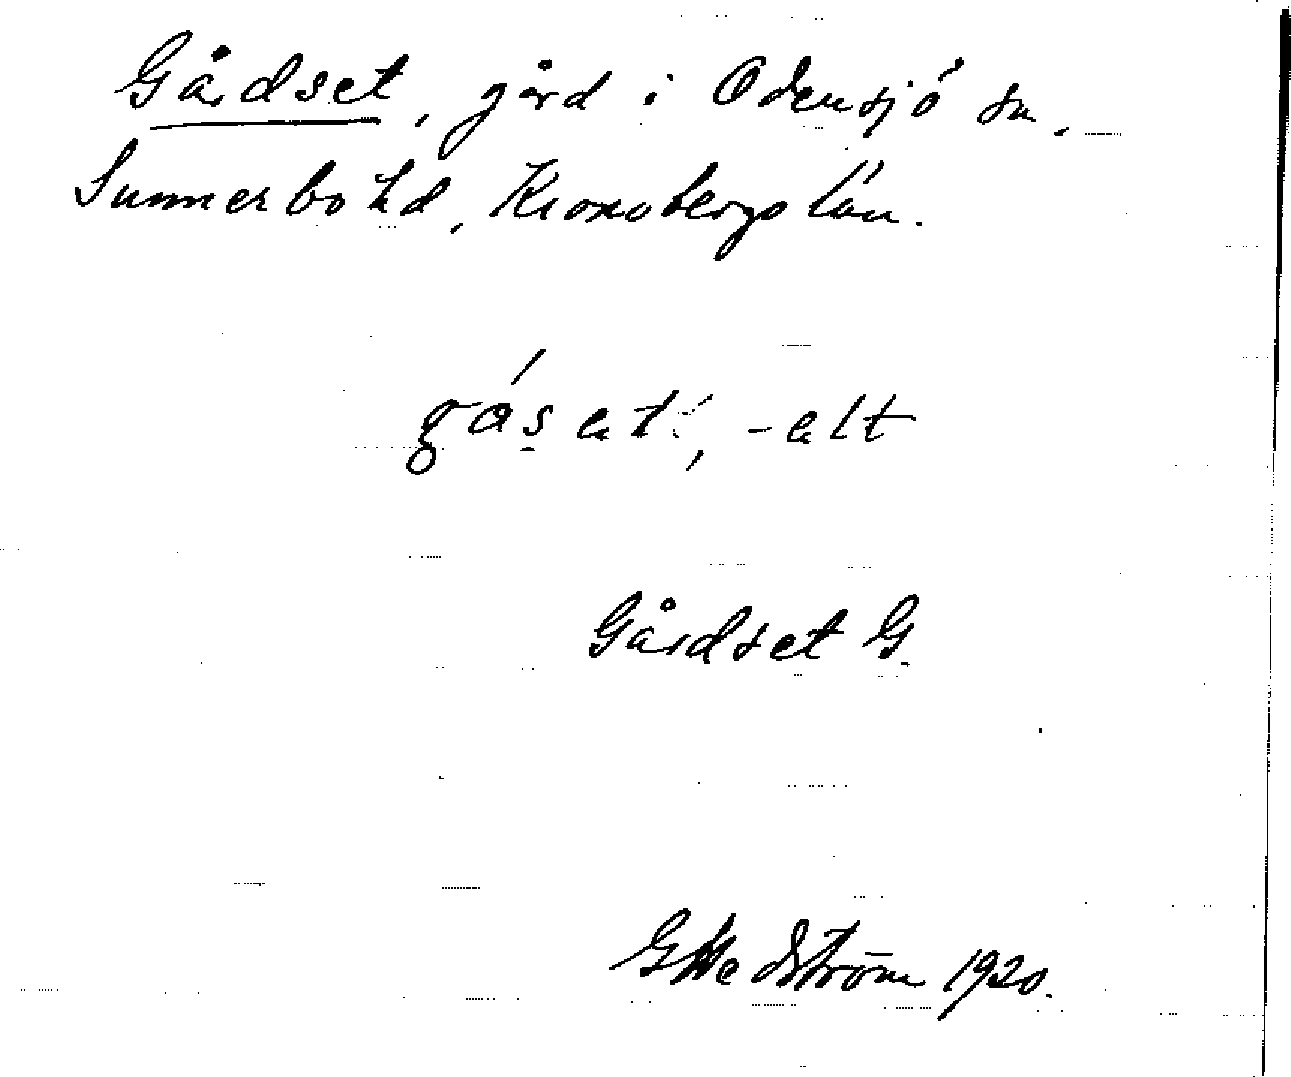 Gårdset, gård i Odensjö sn,
Sunnerbo hd, Kronobergs län.
gǻset, -elt
Gårdset G.
G Hedström 1920.